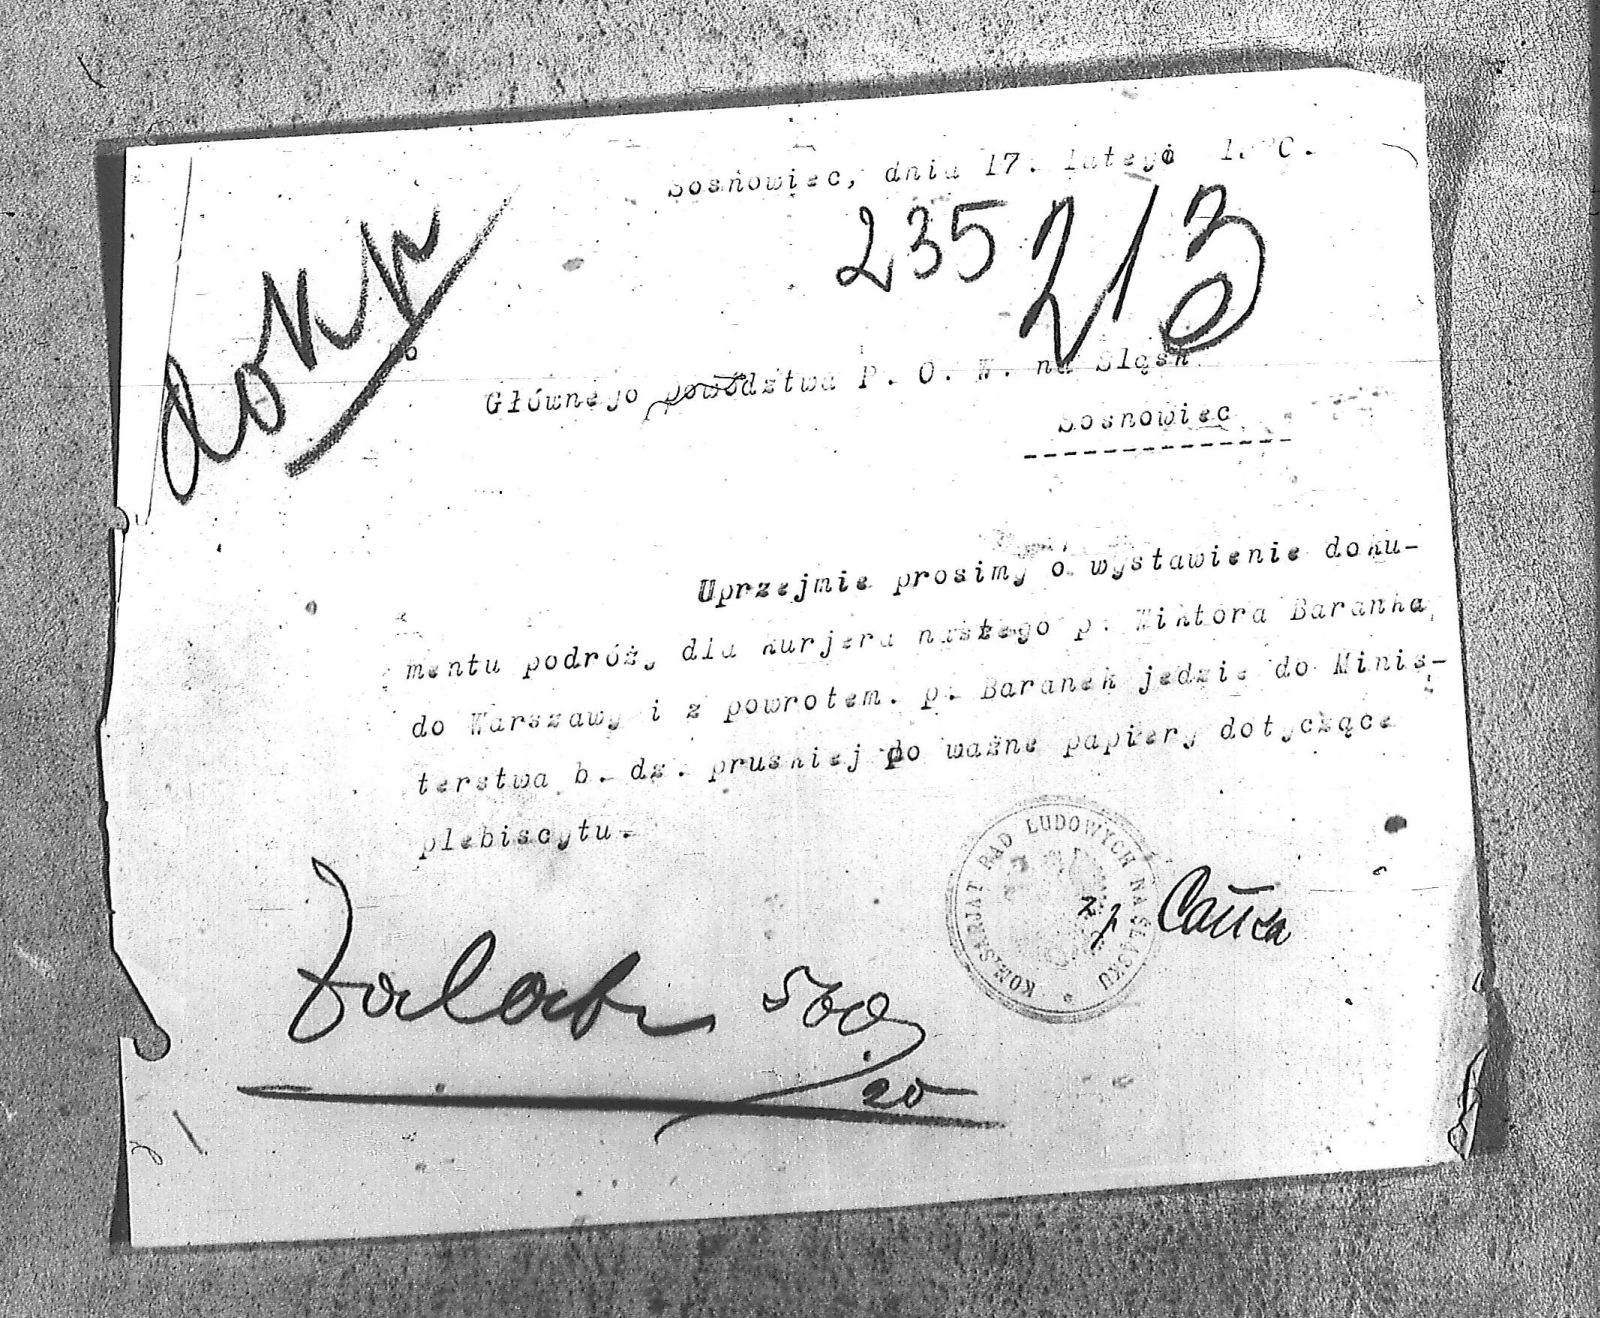 Sosnowiec, dnia 17. lutego 1920.
235 213
dokn
Do
Głównego powództwa P. O. W. na Sląsk
Sosnowiec
Uprzejmie prosimy o wystawienie doku-
mentu podróży dla kurjera naszego p. Wiktora Baranka
do Warszawy i z powrotem. p. Baranek jedzie do Minis-
terstwa b. dz. pruskiej po ważne papiery dotyczące
plebiscytu.
KOMISARJAT RAD LUDOWYCH NA ŚLĄSKU *
20